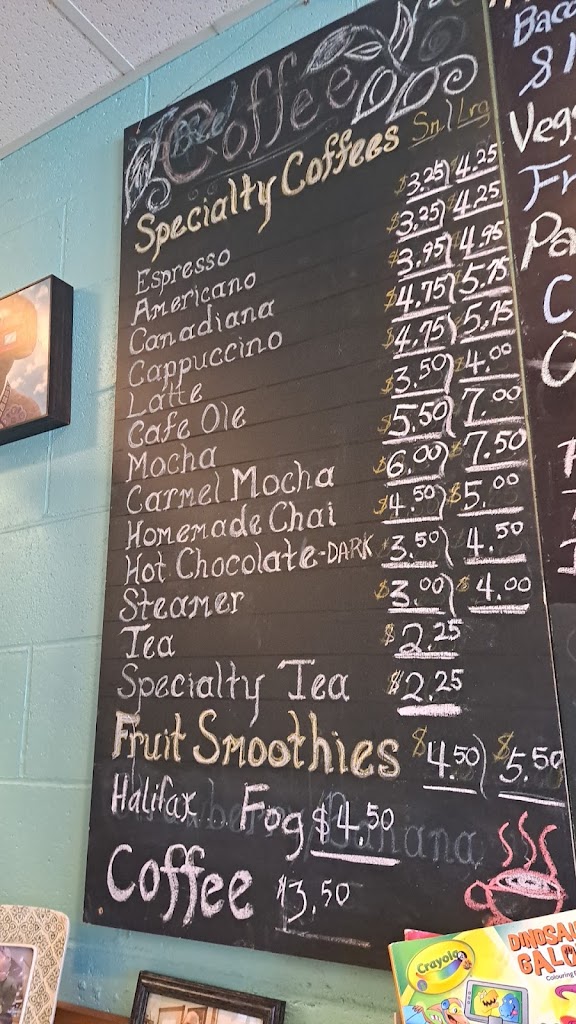 Coffee
Specialty Coffees Sm/Lrg
Espresso $3.25/$4.25
Americano $3.25/$4.25
Canadiana $3.95/$4.95
Cappuccino $4.75/$5.75
Latte $4.75/5.75
Cafe Ole $3.50/$4.00
Mocha $5.50/7.00
Carmel Mocha $6.00/$7.50
Homemade Chai $4.50/$5.00
Hot Chocolate-DARK $3.50/4.50
Steamer $3.00/$4.00
Tea $2.25
Specialty Tea $2.25
Fruit Smoothies $4.50/$5.50
Halifax Fog $4.50
Coffee $3.50
Crayola